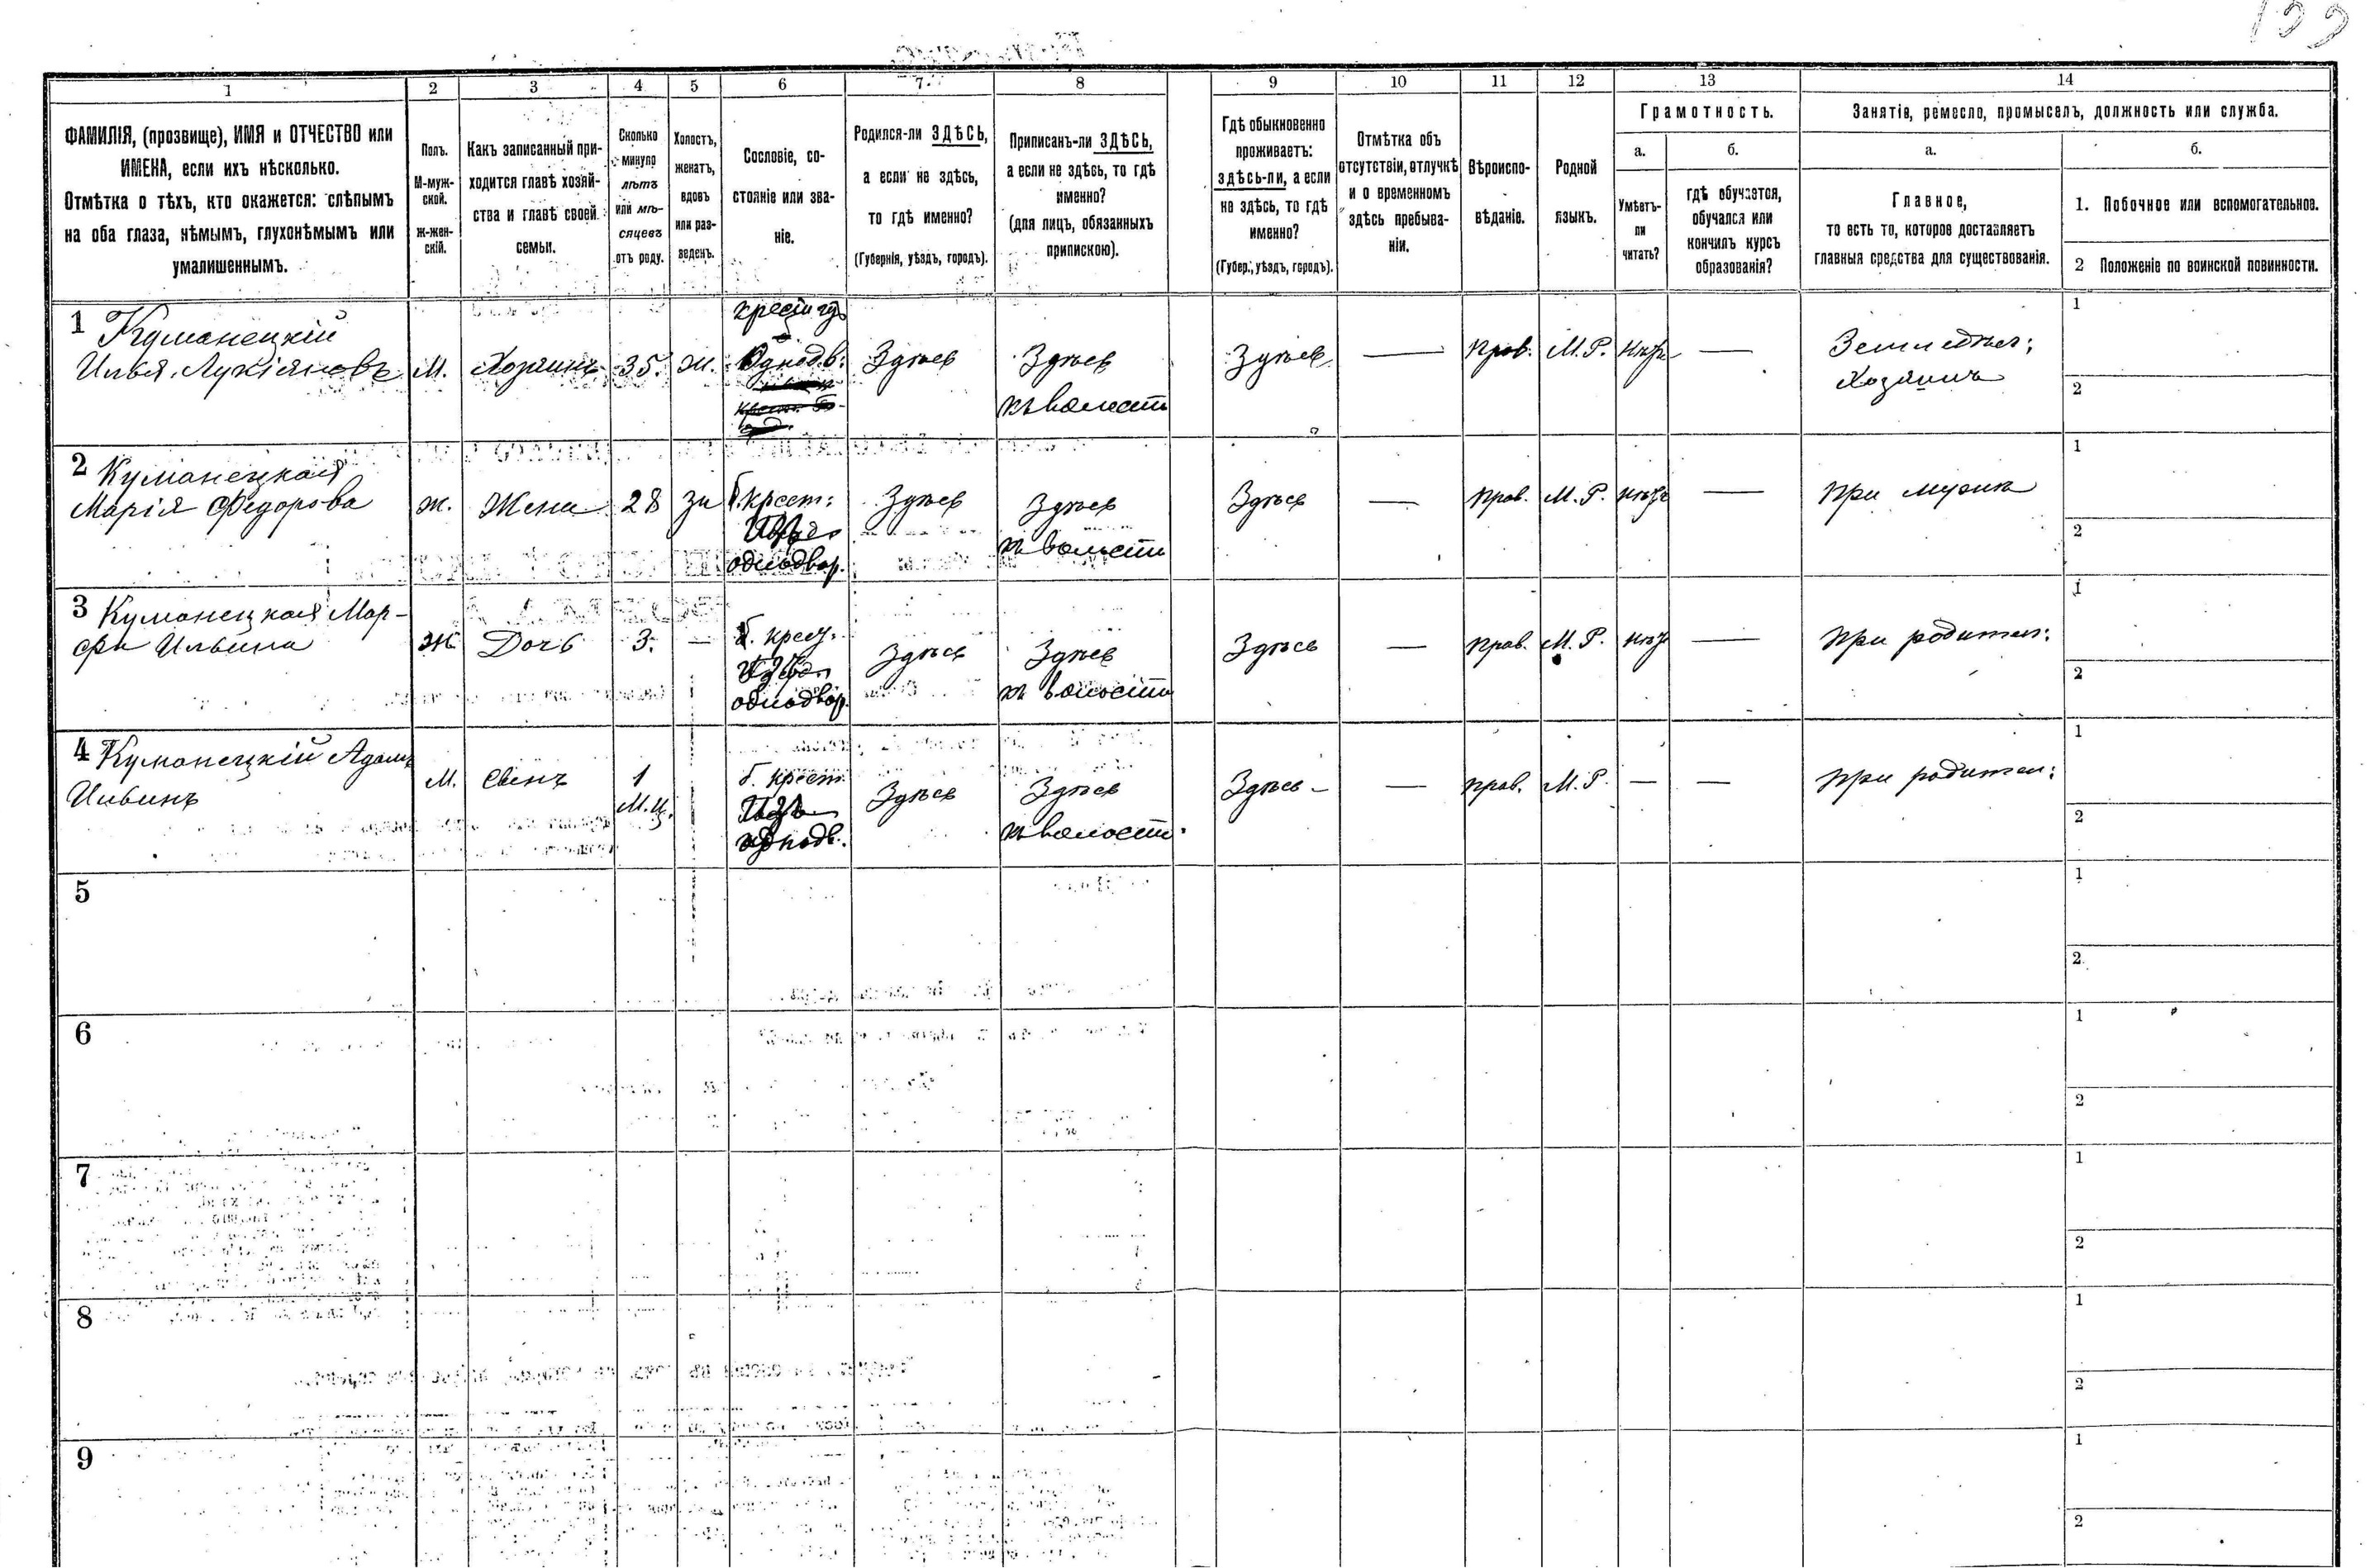 1 2 3 4 5 6 7. 8 9 10 11 12 13 14
ФАМИЛІЯ, (прозвище), ИМЯ и ОТЧЕСТВО или
ИМЕНА, если ихъ нѣсколько.
Отмѣтка о тѣхъ, кто окажется: слѣпымъ
на оба глаза, нѣмымъ, глухонѣмымъ или
умалишеннымъ.
Полъ.
М-муж-
ской.
Ж-жен-
скій.
Какъ записанный при-
ходится главѣ хозяй-
ства и главѣ своей
семьи.
Сколько
минуло
лѣтъ
или мѣ-
сяцевъ
отъ роду.
Холостъ,
женатъ,
вдовъ
или раз-
веденъ.
Сословіе, со-
стояніе или зва-
ніе.
Родился-ли ЗДѢСЬ,
а если не здѣсь,
то гдѣ именно?
(Губернія, уѣздъ, городъ).
Приписанъ-ли ЗДѢСЬ,
а если не здѣсь, то гдѣ
именно?
(для лицъ, обязанныхъ
припискою).
Гдѣ обыкновенно
проживаетъ:
здѣсь-ли, а если
не здѣсь, то гдѣ
именно?
(Губер., уѣздъ, городъ).
Отмѣтка объ
отсутствіи, отлучкѣ
и о временномъ
здѣсь пребыва-
ніи.
Вѣроиспо-
вѣданіе.
Родной
языкъ.
Грамотность.
а.
Умѣетъ-
ли
читать?
б.
гдѣ обучается,
обучался или
кончилъ курсъ
образованія?
Занятіе, ремесло, промыселъ, должность или служба.
а.
Главное,
то есть то, которое доставляетъ
главныя средства для существованія.
б.
1. Побочное или вспомогательное.
2 Положеніе по воинской повинности.
1 Куманецкій
Илья Лукіяновъ
М.
Хозяинъ
35.
ж.
Однодв.
Здѣсь
Здѣсь
къ волости
Здѣсь
—
прав.
М. Р.
нѣтъ
—
Земледѣл:
Хозяинъ
1
2
2 Куманецкая
Марія Федорова
ж.
Жена
28
за
б. крест:
изъ
однодвор.
Здѣсь
Здѣсь
къ волости
Здѣсь
—
прав.
М. Р.
нѣтъ
—
при мужѣ
1
2
3 Куманецкая Мар-
фа Ильина
ж
Дочь
3.
—
б. крест.
изъ
однодвор.
Здѣсь
Здѣсь
къ волости
Здѣсь
—
прав.
М. Р.
нѣтъ
—
при родител:
1
2
4 Куманецкій Адамъ
Ильинъ
М.
Сынъ
1
М.ц.
б. крест.
изъ
однодв.
Здѣсь
Здѣсь
къ волости
Здѣсь
—
прав.
М. Р.
—
—
при родител:
1
2
5
1
2
6
1
2
7
1
2
8
1
2
9
1
2